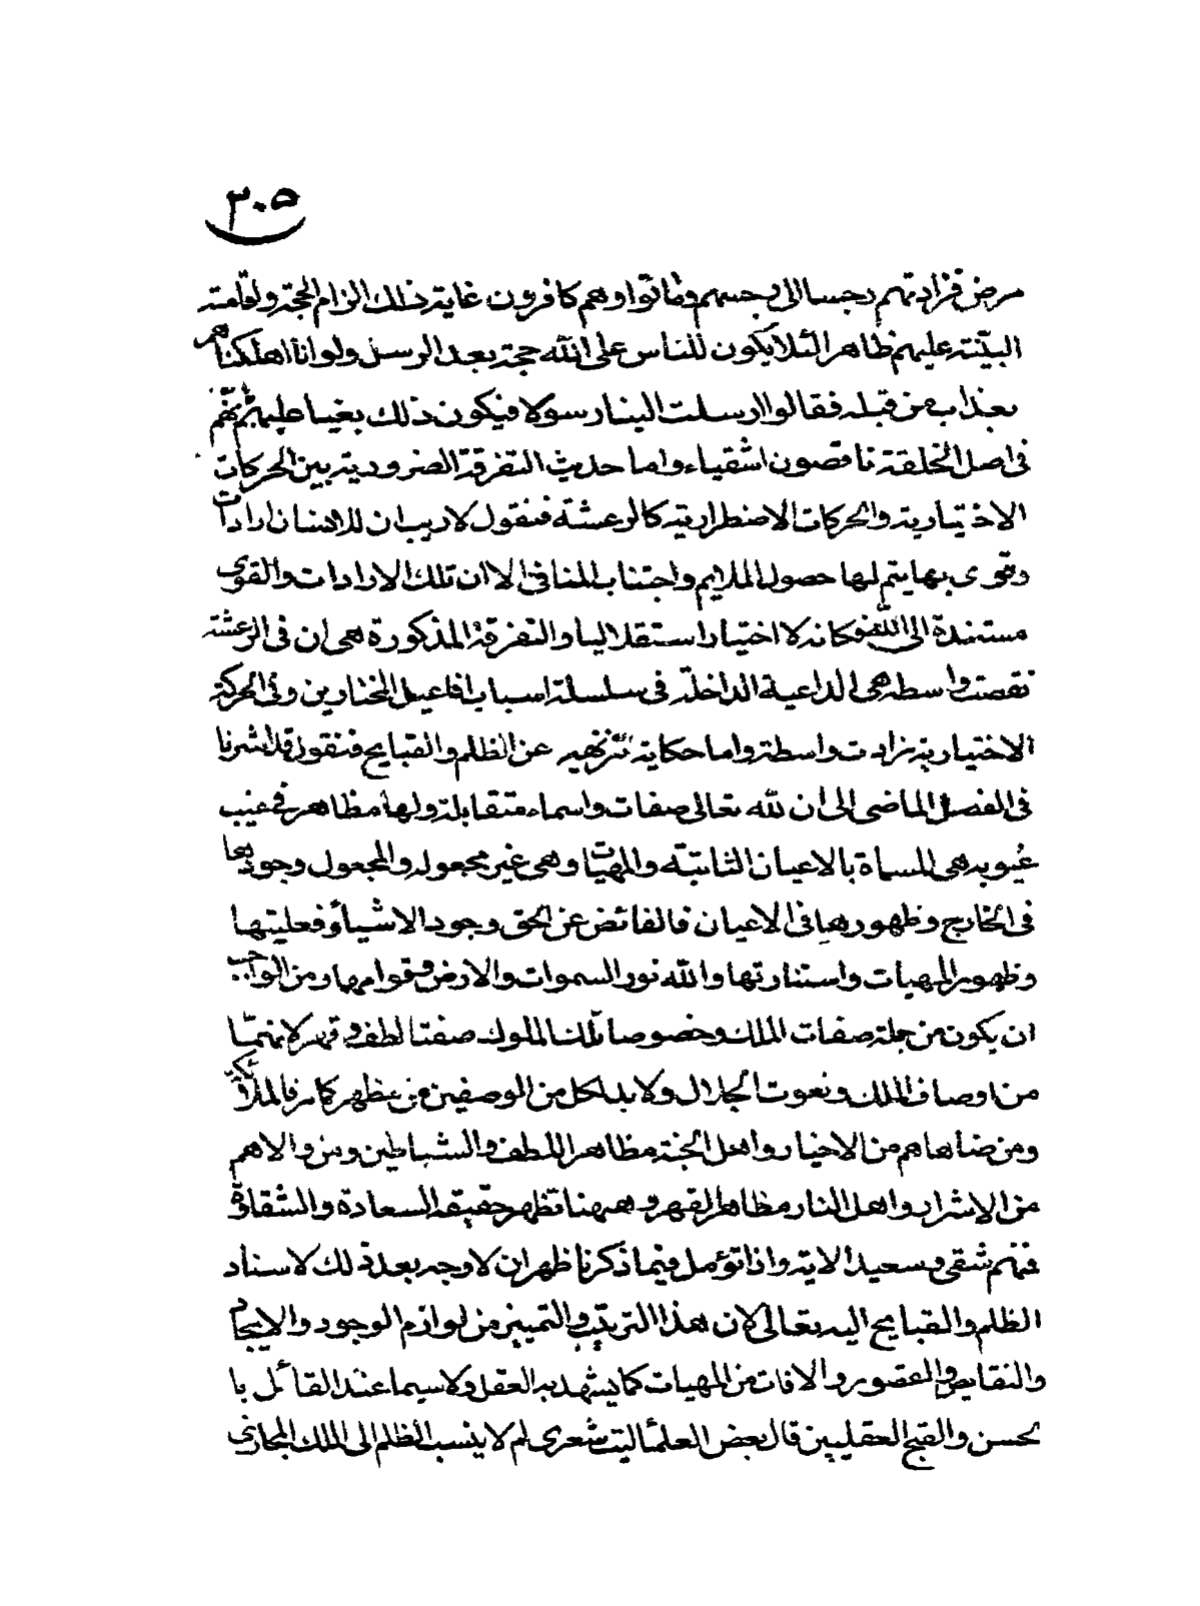 ٣٠٥
مرض فزادتهم رجسا الى رجسهم وماتوا وهم كافرون غاية ذلك الزام الحجة واقامته
البينة عليهم ظاهرا لئلا يكون للناس على الله حجة بعد الرسل ولو انا اهلكناهم
بعذاب من قبله فقالوا ارسلت الينا رسولا فيكون ذلك بغيا عليهم
فى اصل الخلقة ناقصون اشقياء واما حديث التفرقة الضرورية بين الحركات
الاختيارية والحركات الاضطرارية كالرعشة فنقول لا ريب ان للانسان ارادات
وقوى بها يتم لها حصول الملايم واجتناب المنافى الا ان تلك الارادات والقوى
مستندة الى الله فكانه لا اختيار استقلاليا والتفرقة المذكورة هى ان فى الرعشة
نقصت واسطة هى الداعية الداخلة فى سلسلة اسباب افاعيل المختارين وفى الحركة
الاختيارية زادت واسطة واما حكاية تنزيهه عن الظلم والقبايح فنقول قد اشرنا
فى الفصل الماضى الى ان لله تعالى صفات واسماء متقابلة ولها مظاهر فى غيب
غيوبه هى المسماة بالاعيان الثابتة والمهيات وهى غير مجعولة والمجعول وجودها
فى الخارج وظهورها فى الاعيان فالفائض عن الحق وجود الاشياء وفعليتها
وظهور المهيات واستنارتها والله نور السموات والارض وقوامهما ومن الواجب
ان يكون من جملة صفات الملك وخصوصا ملك الملوك صفتا لطف وقهر لانهما
من اوصاف الملك ونعوت الجلال ولا بد لكل من الوصفين من مظهر كما مر فالملائكة
ومن ضاهاهم من الاخيار واهل الجنة مظاهر اللطف والشياطين ومن والاهم
من الاشرار واهل النار مظاهر القهر وههنا تظهر حقيقة السعادة والشقاوة
فمنهم شقى وسعيد الاية واذا تؤمل فيما ذكرنا ظهر ان لا وجه بعد ذلك لاسناد
الظلم والقبايح اليه تعالى لان هذا الترتيب والتمييز من لوازم الوجود والايجاد
والنقايص والقصور والافات من المهيات كما يشهد به العقل ولا سيما عند القائل با
لحسن والقبح العقليين قال بعض العلماء ليت شعرى لم لا ينسب الظلم الى الملك المجازى